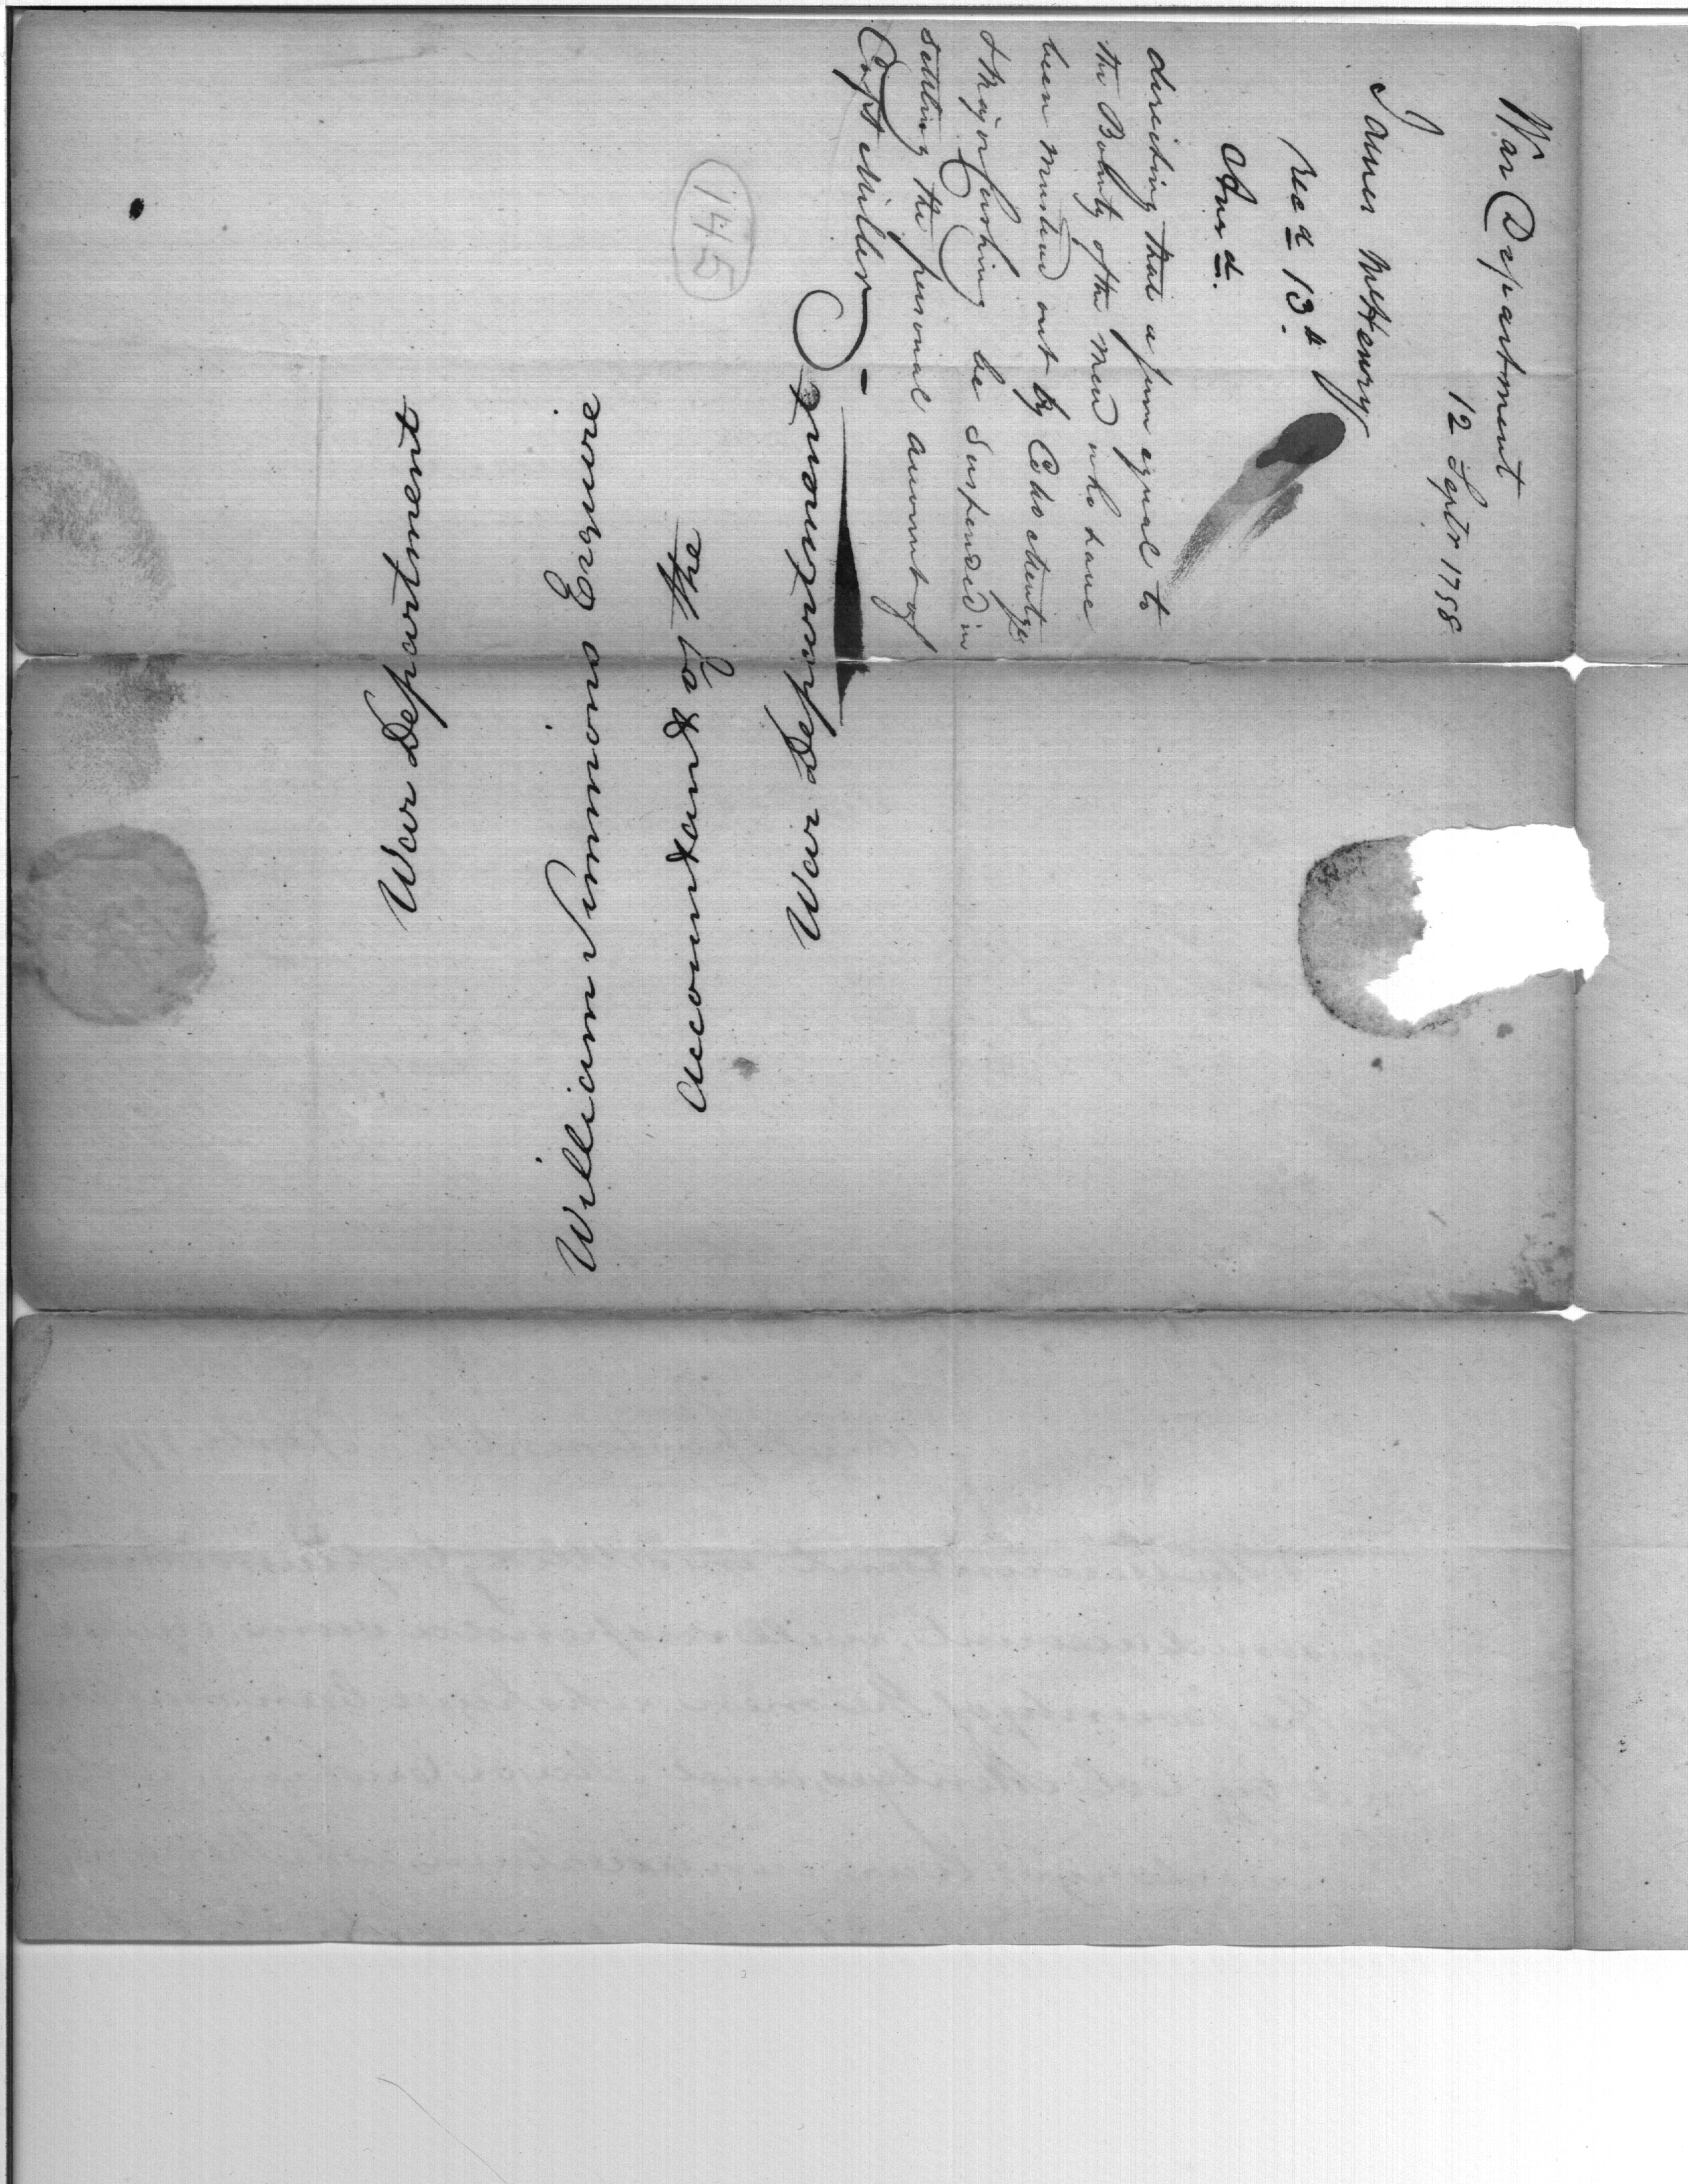 War Department
12 Septr 1798
James McHenry
Recd 13th
Ansd.
directing that a sum equal to
the Bounty of the men who have
been mustered out by Colo Mentges
& Major Cushing be suspended in
settling the personal account of
Capt Miller —
145
War Department
William Simmons Esquire
Accountant of the
War Department